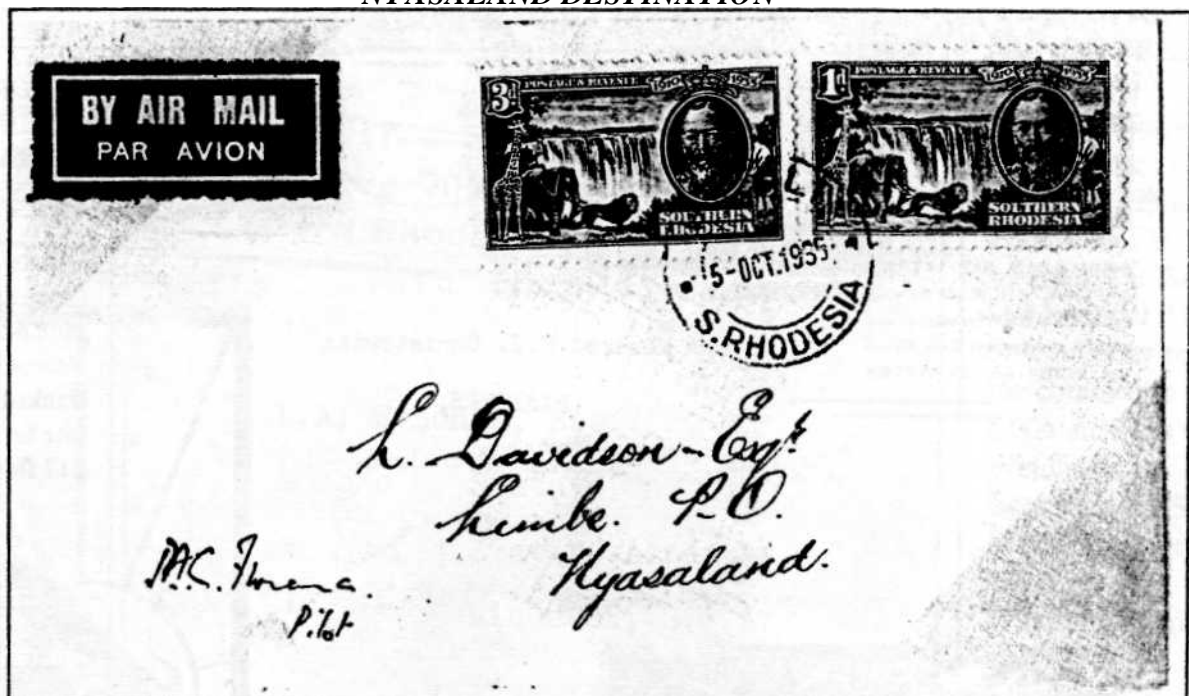 NYASALAND DESTINATION
BY AIR MAIL
PAR AVION
3d POSTAGE & REVENUE 1910 1935
SOUTHERN
RHODESIA
1d POSTAGE & REVENUE 1910 1935
SOUTHERN
RHODESIA
5-OCT.1935
S.RHODESIA
L. Davidson - Esqr.
Limbe. P.O.
Nyasaland.
Pilot